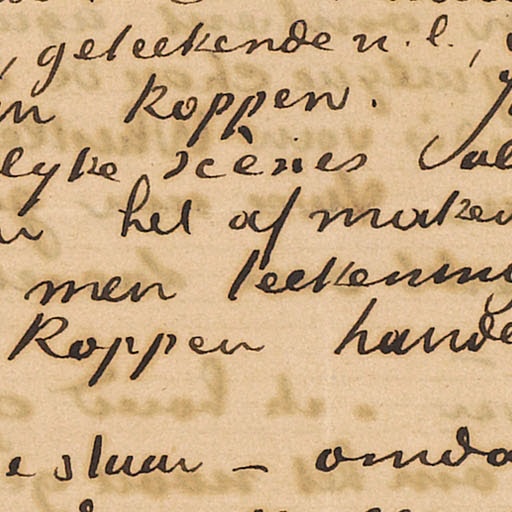 , geteekende n.l.,
n koppen.
lyke scènes val
het afmaken
men teekening
Koppen hande
e staan — omda